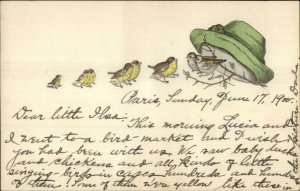 Paris, Sunday, June 17, 1900.
Dear little Ilsa:- This morning Lucia and
I went to a bird-market and I wish
you had been with us. We saw baby ducks
and chickens and all kinds of little
singing-birds in cages hundreds and hundreds
of them! Some of them were yellow like these